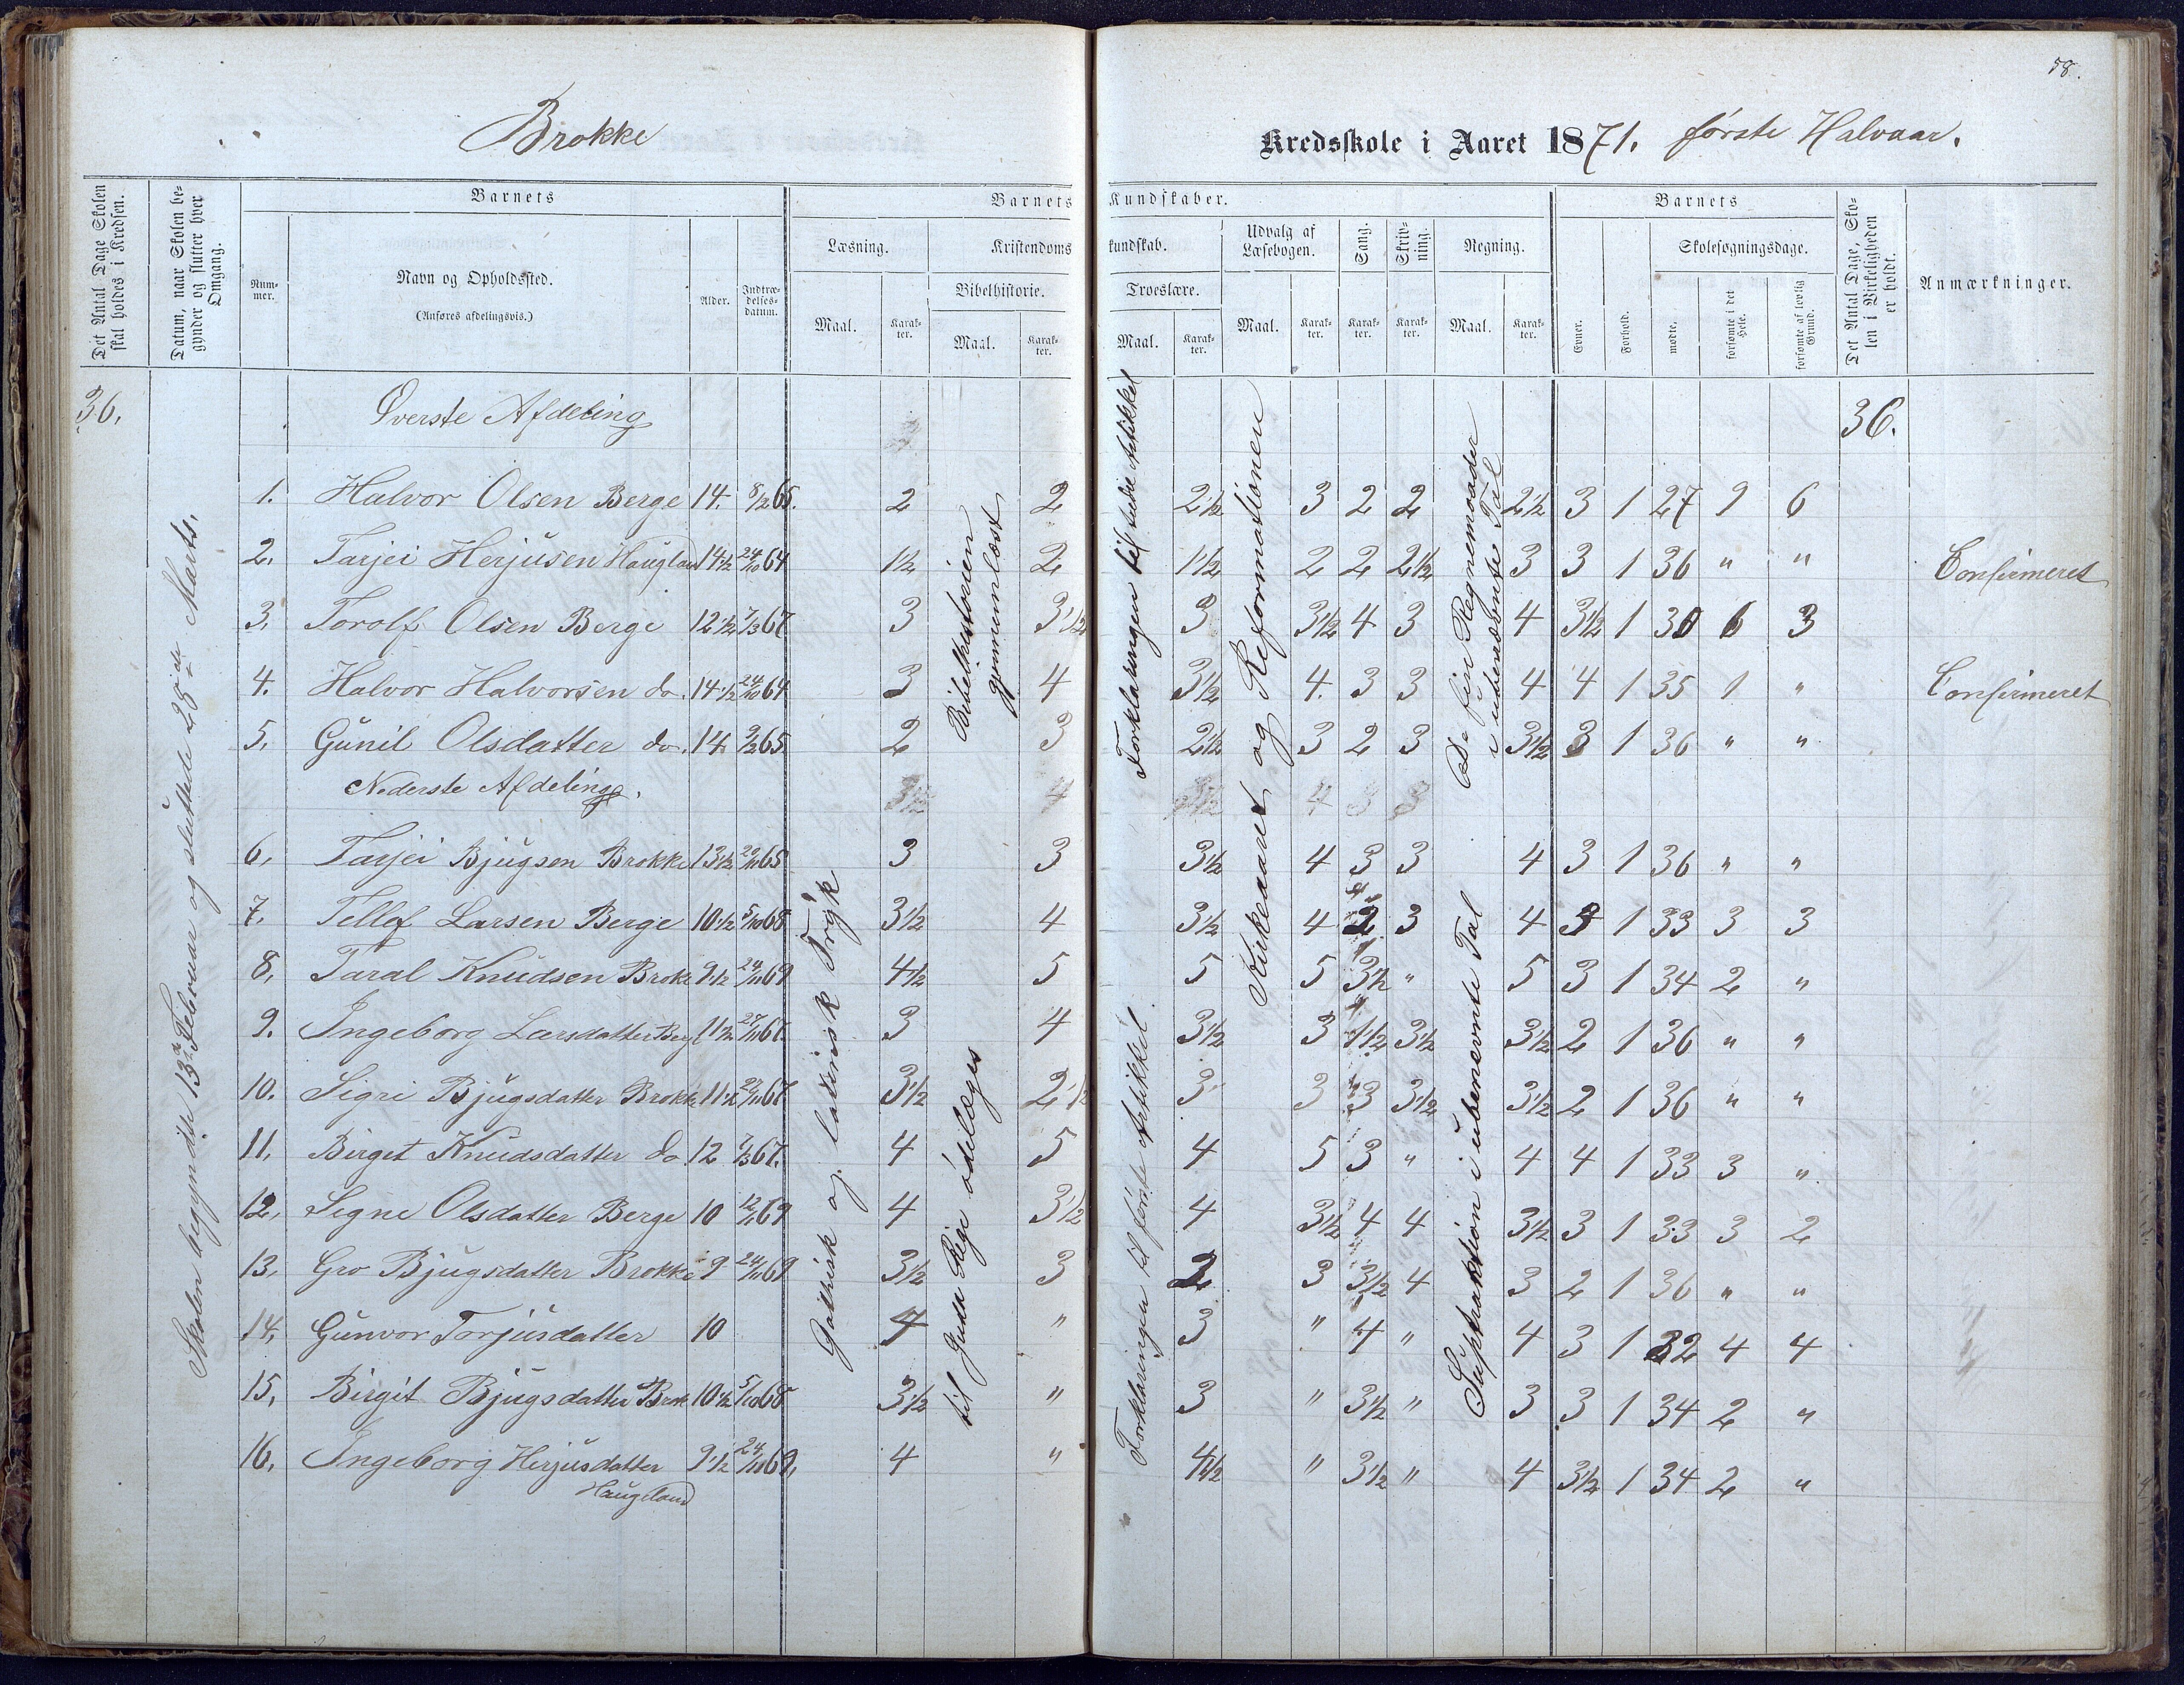 58.
Brokke
Kredsskole i Aaret 1871. første Halvaar.
Det Antal Dage Skolen skal holdes i Kredsen.
Datum, naar Skolen begynder og slutter hver Omgang.
Barnets
Nummer.
Navn og Opholdssted.
(Anføres afdelingsvis.)
Alder.
Indtrædelsesdatum.
Barnets Kundskaber.
Læsning.
Maal.
Karakter.
Kristendomskundskab.
Bibelhistorie.
Maal.
Karakter.
Troeslære.
Maal.
Karakter.
Udvalg af Læsebogen.
Maal.
Karakter.
Sang.
Karakter.
Skrivning.
Karakter.
Regning.
Maal.
Karakter.
Barnets
Evner.
Forhold.
Skolesøgningsdage.
mødte.
forsømte i det Hele.
forsømte af lovlig Grund.
Det Antal Dage, Skolen i Virkeligheden er holdt.
Anmærkninger.
36. Øverste Afdeling 36.
1. Halvor Olsen Berge 14. 8/12 65. 2 2 2 1/2 3 2 2 2 1/2 3 1 27 9 6
2. Tarjei Herjusen Haugland 14 1/2 24/10 64 1 1/2 2 1 1/2 2 2 2 1/2 3 3 1 36 " " Confirmeret
3. Torolf Olsen Berge 12 1/2 7/3 67 3 3 1/2 3 3 1/2 4 3 4 3 1/2 1 30 6 3
4. Halvor Halvorsen do. 14 1/2 24/10 64 3 4 3 1/2 4. 3 3 4 4 1 35 1 " Confirmeret
5. Gunil Olsdatter do. 14 9/2 65 2 3 2 1/2 3 2 3 3 1/2 3 1 36 " "
Nederste Afdeling.
6. Tarjei Bjugsen Brokke 13 1/2 65 3 3 3 1/2 4 3 3 4 3 1 36 " "
7. Tellef Larsen Berge 10 1/2 5/10 68 3 1/2 4 3 1/2 4 2 3 4 3 1 33 3 3
8. Taral Knudsen Broke 9 1/2 24/11 69 4 1/2 5 5 5 3 1/2 " 5 3 1 34 2 "
9. Ingeborg Larsdatter Berg 11 1/2 67. 3 4 3 1/2 3 1 1/2 3 1/2 3 1/2 2 1 36 " "
10. Sigri Bjugsdatter Brokke 11 1/2 67 3 1/2 2 1/2 3 3 3 3 1/2 3 1/2 2 1 36 " "
11. Birget Knudsdatter do 12 7/3 67. 4 5 4 5 3 " 4 4 1 33 3 "
12. Signe Olsdatter Berge 10 69 4 3 1/2 4 3 1/2 4 4 3 1/2 3 1 33 3 2
13. Gro Bjugsdatter Brokke 9 24/11 69 3 1/2 3 2 3 3 1/2 4 3 2 1 36 " "
14. Gunvor Torjusdatter 10 4 " 3 " 4 " 4 3 1 32 4 4
15. Birgit Bjugsdatter Brok 10 1/2 5/10 68 3 1/2 " 3 " 3 1/2 " 3 3 1 34 2 "
16. Ingeborg Herjusdatter 9 1/2 24/10 69. 4 " 4 1/2 " 3 1/2 " 4 3 1/2 1 34 2 "
Haugeland
Skolen begyndte 13de Februar og sluttede 25de Marts.
Gothisk og latinisk Tryk
Bibelhistorien
gjennemlæst
til Juda Rige ødelæges
Forklaringen til tredie Artikkel
Forklaringen til første Artikkel
Kirkeaaret og Reformationen
De fire Regnemaader
i ubenævnte Tal
Suptraktion i ubenevnte Tal